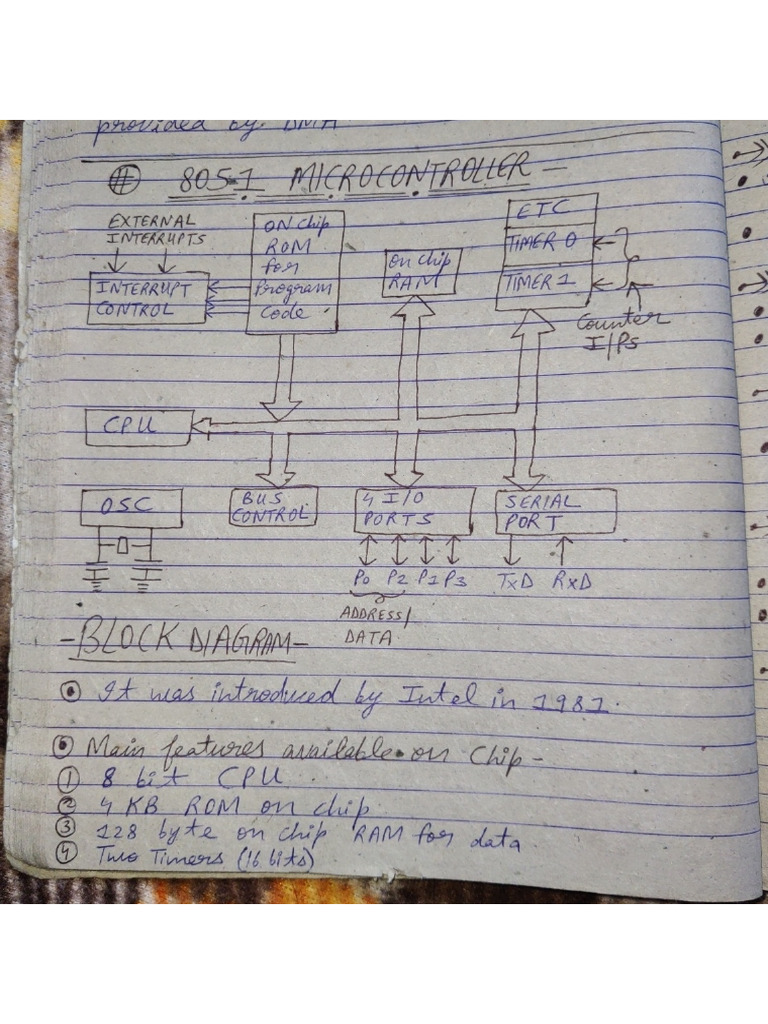 provided by. DMA
# 8051 MICROCONTROLLER -
EXTERNAL
INTERRUPTS
INTERRUPT
CONTROL
ON Chip
ROM
for
Program
Code
On chip
RAM
ETC
TIMER 0
TIMER 1
Counter
I/Ps
CPU
OSC
BUS
CONTROL
4 I/O
PORTS
SERIAL
PORT
P0 P2 P1 P3
TxD RxD
ADDRESS/
DATA
- BLOCK DIAGRAM -
It was introduced by Intel in 1981.
Main features available on Chip -
1 8 bit CPU.
2 4 KB ROM on chip
3 128 byte on chip RAM for data
4 Two Timers (16 bits)